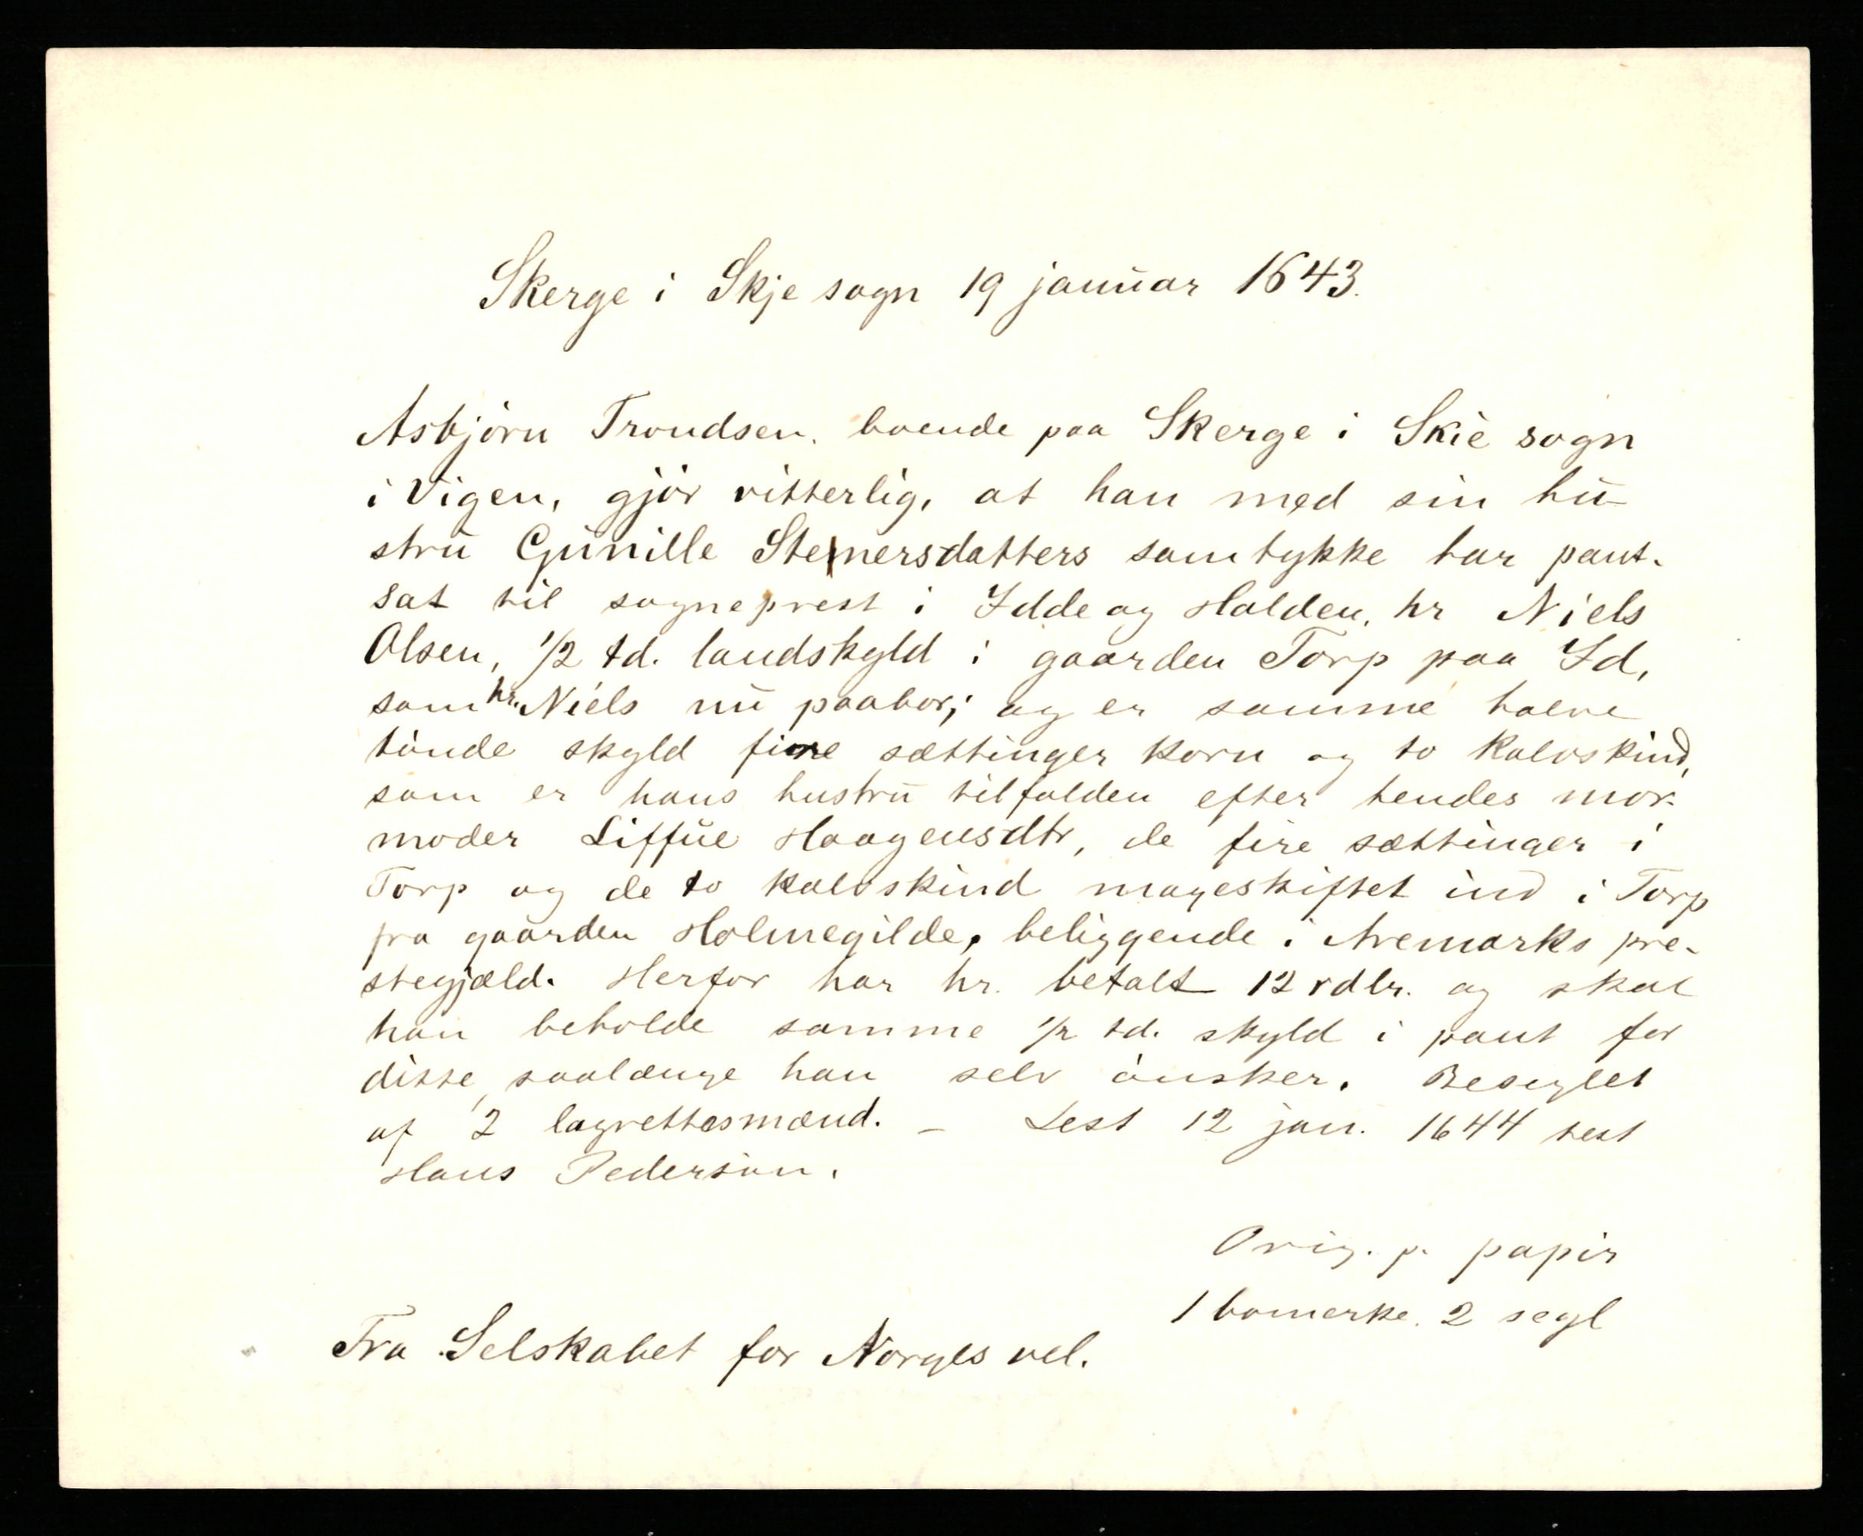 Skerge i Skje sogn 19 januar 1643.
Asbjörn Trondsen, boende paa Skerge i Skie sogn
i Vigen, gjör vitterlig, at han med sin hu-
stru Gunille Stenersdatters samtykke har pant-
sat til sogneprest i Idde og Halden, hr Niels
Olsen, 1/2 td. landskyld i gaarden Torp paa Id,
som hr. Niels nu paabor; og er samme halve
tönde skyld fire sættinger korn og to kalvskind,
som er hans hustru tilfalden efter hendes mor-
moder Liffue Haagensdtr, de fire sættinger i
Torp og de to kalvskind mageskiftet ind i Torp
fra gaarden Holmegilde, beliggende i Aremarks pre-
stegjæld. Herfor har hr. betalt 12 rdlr. og skal
han beholde samme 1/2 td. skyld i pant for
disse, saalænge han selv önsker. Beseglet
af 2 lagrettesmænd. – Lest 12 jan. 1644 test
Hans Pedersön.
Orig. p. papir
1 bomerke. 2 segl
Fra Selskabet for Norges vel.